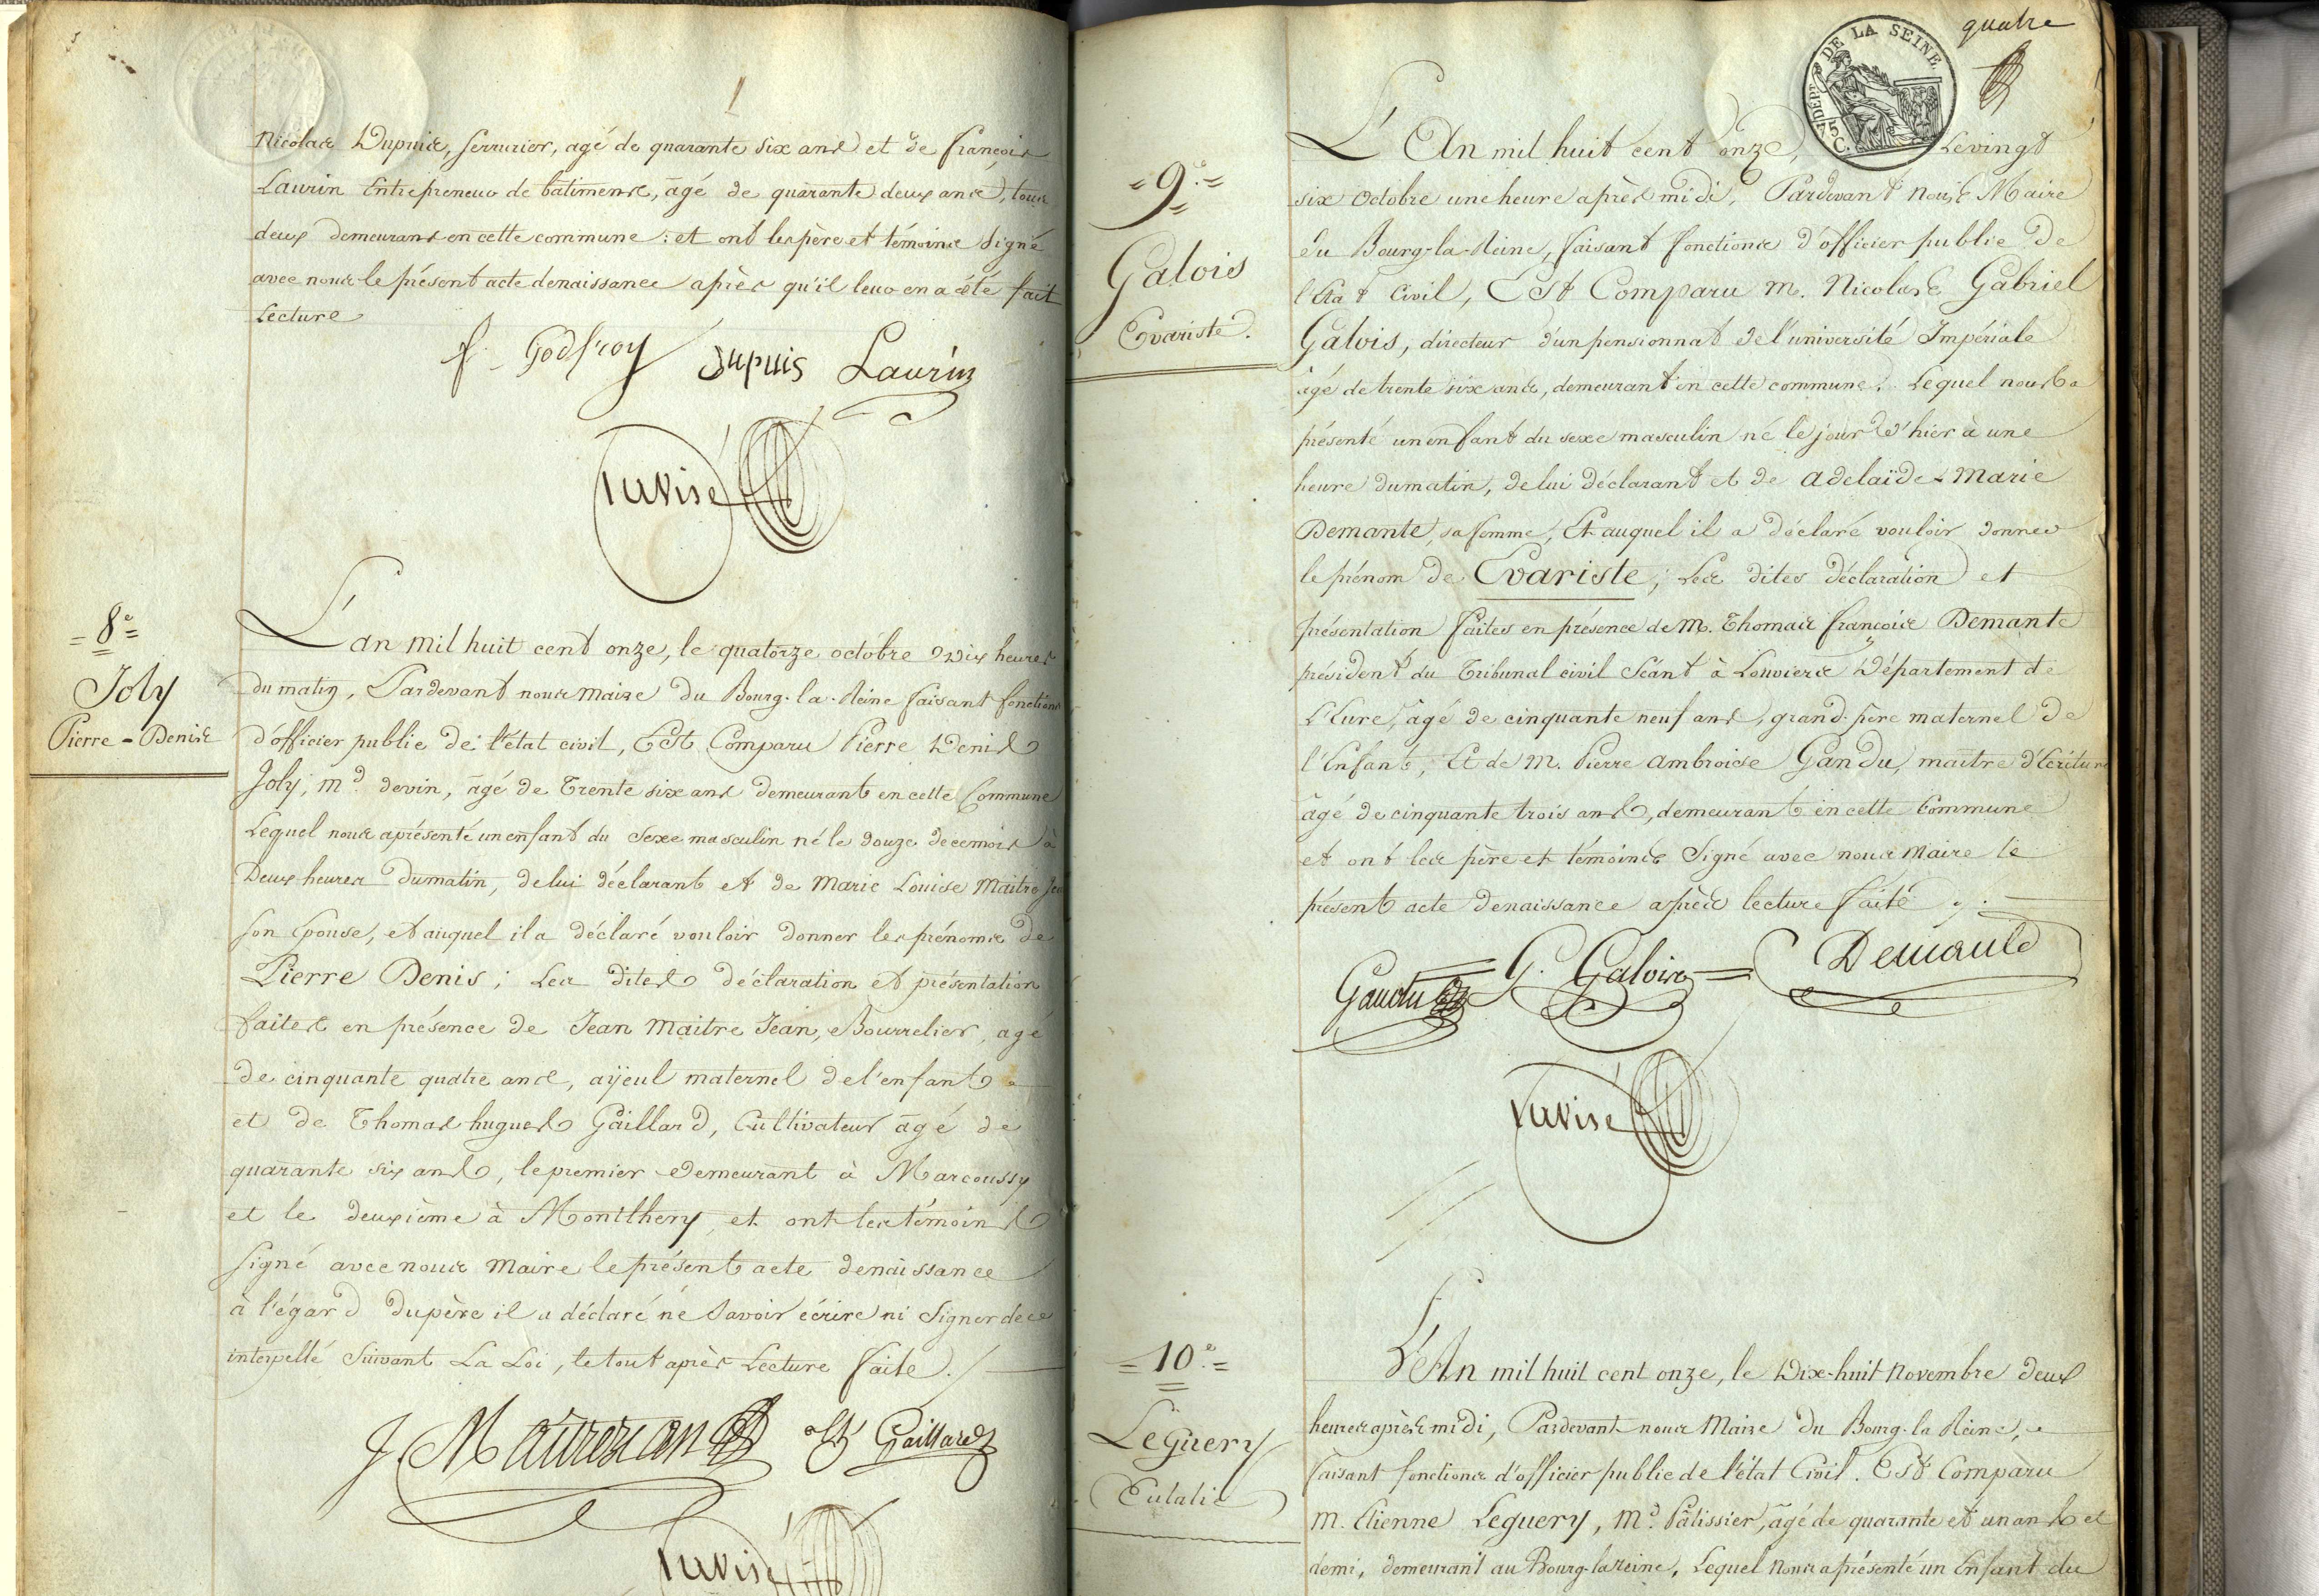 Nicolas Dupuis, serrurier, agé de quarante six ans et de françois
Laurin Entrepreneur de bâtimens, âgé de quarante deux ans, tous
deux demeurans en cette commune : et ont les père et témoins signé
avec nous le présent acte de naissance après qu'il leur en a été fait
Lecture
f. Godfroy Dupuis Laurin
= 8e =
Joly
Pierre - Denis
L'an mil huit cent onze, le quatorze octobre Dix heures
du matin, Pardevant nous maire du Bourg-la-Reine faisant fonctions
d'officier public de l'état civil, Est Comparu Pierre Denis
Joly, md. de vin, âgé de Trente six ans demeurant en cette Commune
Lequel nous a présenté un enfant du Sexe masculin né le douze de ce mois à
Deux heures du matin, de lui déclarant et de Marie Louise Maitre Jean
son Epouse, et auquel il a déclaré vouloir donner les prénoms de
Pierre Denis ; Les dites déclaration et présentation
faites en présence de Jean Maitre Jean, Bourrelier, agé
de cinquante quatre ans, aÿeul maternel de l'enfant
et de Thomas hugues Gaillard, Cultivateur âgé de
quarante six ans, le premier demeurant à Marcoussy
et le deuxième à Montlhery, et ont les témoins
signé avec nous Maire le présent acte de naissance
à l'égard du père il a déclaré ne savoir écrire ni Signer de ce
interpellé Suivant La Loi, le tout après Lecture faite.
Gaillard
quatre
DEPT DE LA SEINE.
75 C.
= 9e. =
Galois
Evariste.
L'An mil huit cent onze, Le vingt
six Octobre une heure après midi, Pardevant Nous Maire
du Bourg-la-Reine, faisant fonctions d'officier public de
l'Etat Civil, Est Comparu M. Nicolas Gabriel
Galois, directeur d'un pensionnat de l'université Impériale
âgé de trente six ans, demeurant en cette commune. Lequel nous a
présenté un enfant du sexe masculin né le jour d'hier à une
heure du matin, de lui déclarant et de Adelaïde-Marie
Demante, sa femme, Et auquel il a déclaré vouloir donner
le prénom de Evariste ; Les dites déclaration et
présentation faites en présence de M. Thomas françois Demante
président du Tribunal civil Séant à Louviers Département de
L'Eure, âgé de cinquante neuf ans, grand-père maternel de
l'Enfant, Et de M. Pierre Ambroise Gandu, maître d'Ecriture
âgé de cinquante trois ans, demeurant en cette Commune
et ont les père et témoins Signé avec nous Maire le
présent acte de naissance après lecture faite.
Gandu G. Galois Demante
= 10e. =
Leguery
Eulalie
L'An mil huit cent onze, le Dix-huit Novembre deux
heures après midi, Pardevant nous Maire du Bourg-la Reine,
faisant fonctions d'officier public de l'état Civil. Est Comparu
M. Etienne Leguery, Md. Pâtissier, âgé de quarante et un ans et
demi, demeurant au Bourg-la reine, Lequel Nous a présenté un Enfant du